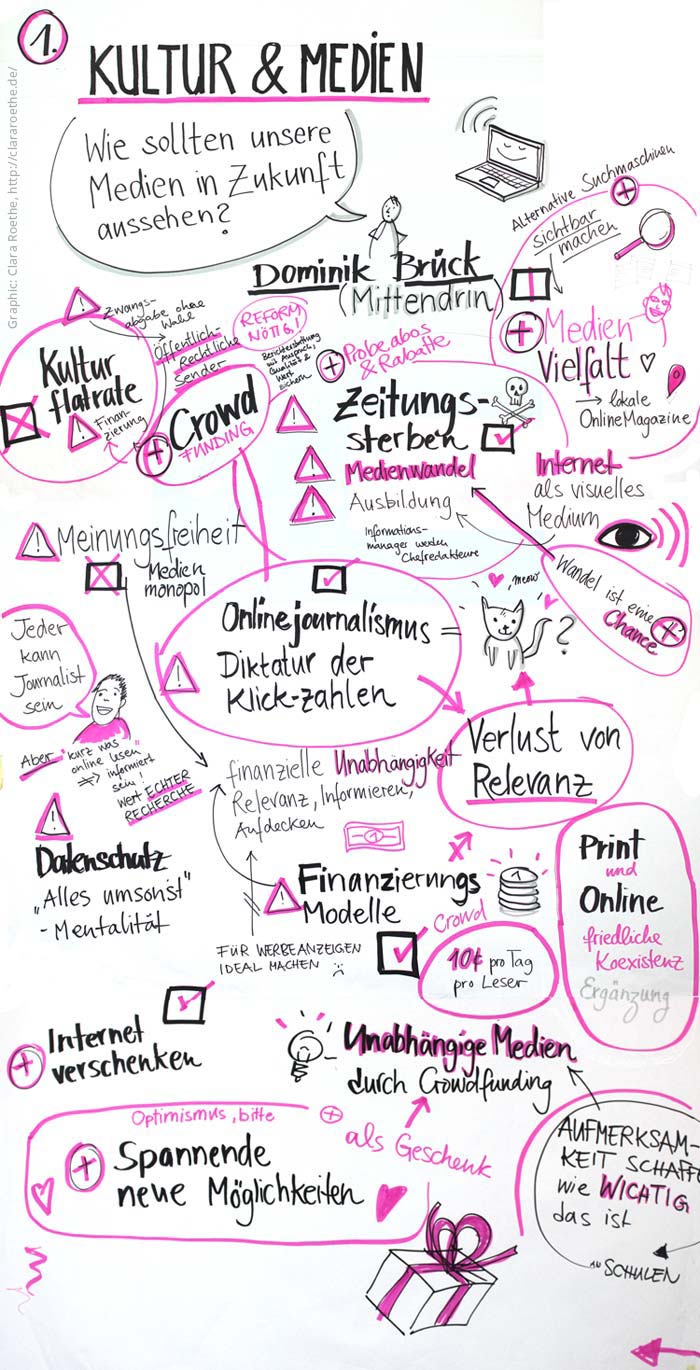 1.
KULTUR & MEDIEN
Graphic: Clara Roethe, http://clararoethe.de/
Wie sollten unsere
Medien in Zukunft
aussehen?
Dominik Brück
(Mittendrin)
Alternative Suchmaschinen
sichtbar
machen
Medien
Vielfalt
→ lokale
OnlineMagazine
Zwangs-
abgabe ohne
Wahl
Öffentlich-
Rechtliche
Sender
REFORM
NÖTIG!
Berichterstattung
mit Anspruch,
Qualität &
Wert
sichern
Kultur
flatrate
Finan-
zierung
Crowd
FUNDING
Probeabos
& Rabatte
Zeitungs-
sterben
Medienwandel
Ausbildung
Informations-
manager werden
Chefredakteure
Internet
als visuelles
Medium
Wandel ist eine
Chance
Meinungsfreiheit
Medien
monopol
Onlinejournalismus =
Diktatur der
Klick-zahlen
, meow
?
Jeder
kann
Journalist
sein
Aber "kurz was
online lesen"
⇒ informiert
sein!
Wert ECHTER
RECHERCHE
Verlust von
Relevanz
finanzielle Unabhängigkeit
Relevanz, Informieren,
Aufdecken
1
Datenschutz
„Alles umsonst"
- Mentalität
Finanzierungs
Modelle
1
FÜR WERBEANZEIGEN
IDEAL MACHEN
Crowd
10¢ pro Tag
pro Leser
Print
und
Online
friedliche
Koexistenz
Ergänzung
Internet
verschenken
Unabhängige Medien
durch Crowdfunding
als Geschenk
Optimismus, bitte
Spannende
neue Möglichkeiten
AUFMERKSAM-
KEIT SCHAFF
wie WICHTIG
das ist
an SCHULEN